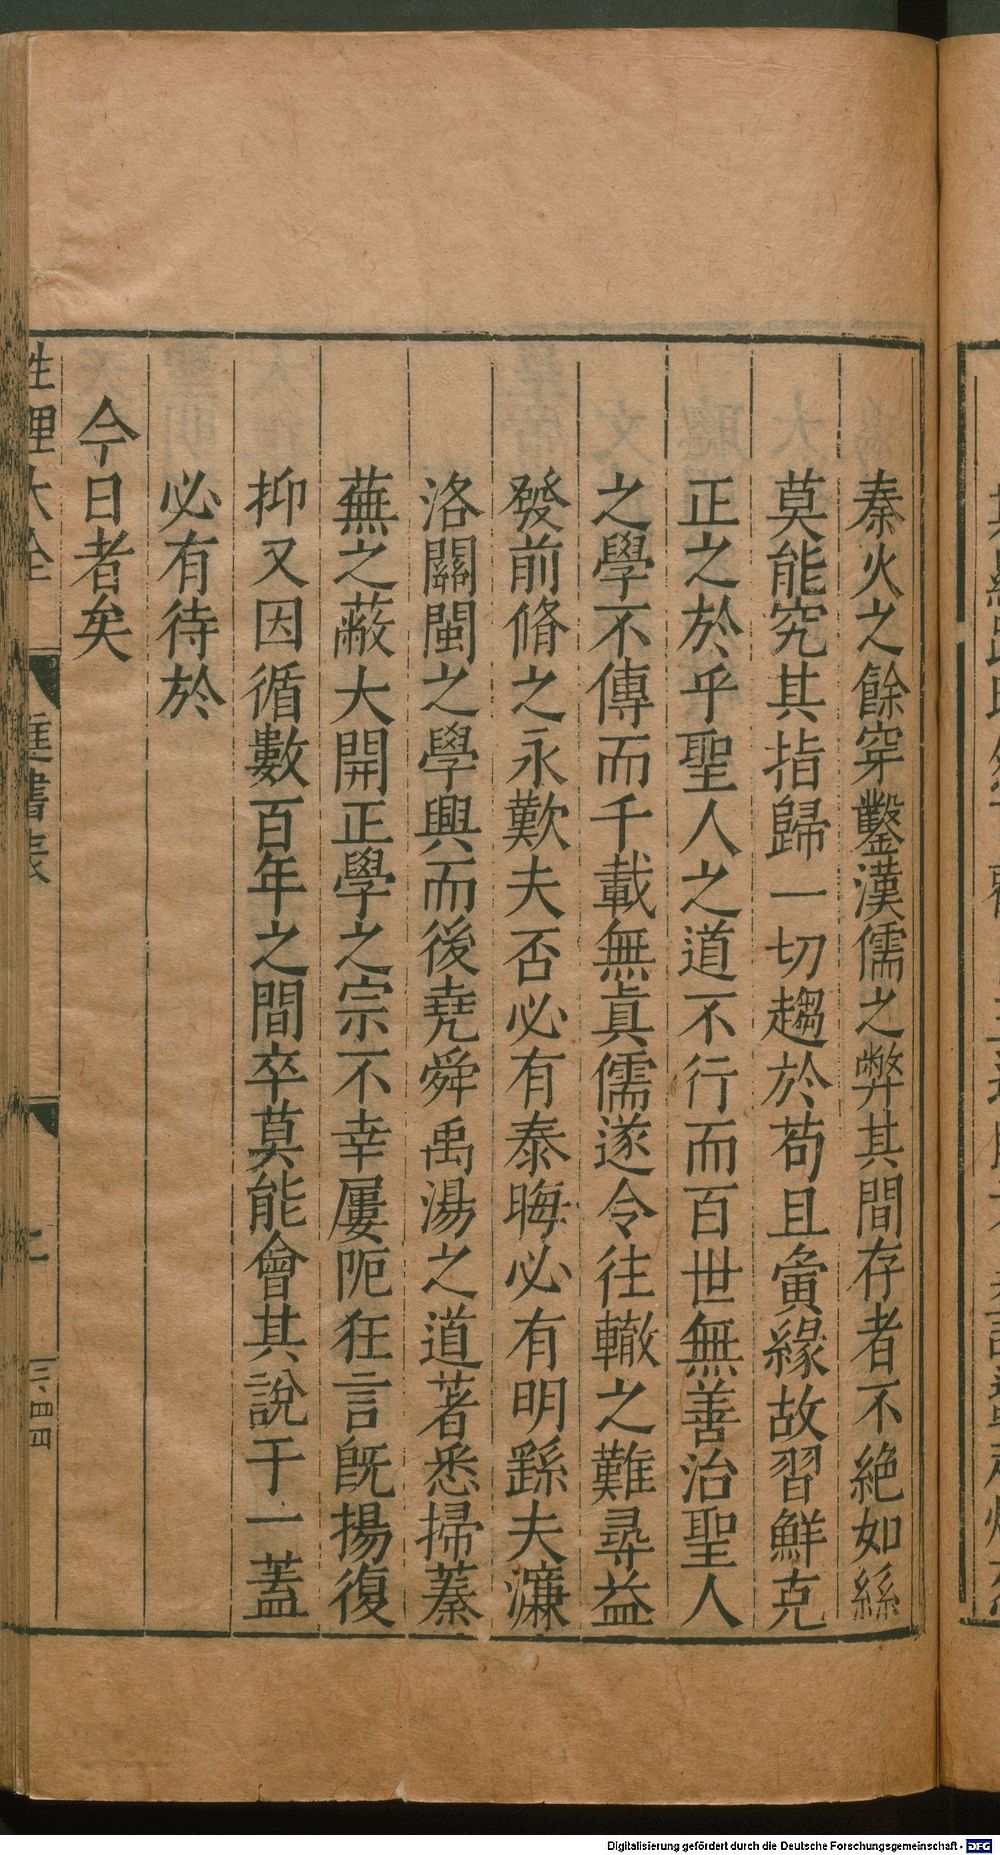 秦火之餘穿鑿漢儒之弊其間存者不絶如絲
莫能究其指歸一切趨於苟且夤緣故習鮮克
正之於乎聖人之道不行而百世無善治聖人
之學不傳而千載無眞儒遂令往轍之難尋益
發前脩之永歎夫否必有泰晦必有明繇夫濂
洛關閩之學興而後堯舜禹湯之道著悉掃蓁
蕪之蔽大開正學之宗不幸屢阨狂言旣揚復
抑又因循數百年之間卒莫能會其說于一蓋
必有待於
今日者矣
性理大全
進書表
二
三四
Digitalisierung gefördert durch die Deutsche Forschungsgemeinschaft - DFG